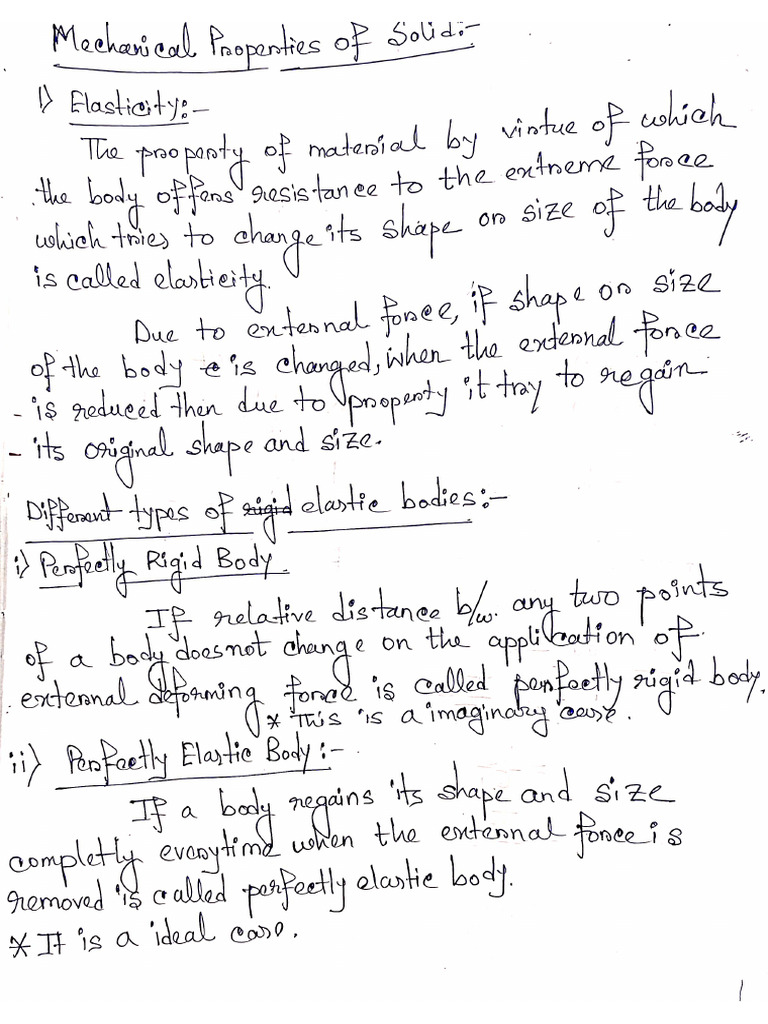 Mechanical Properties of Solid:-
1) Elasticity:-
The property of material by virtue of which
the body offers resistance to the extreme force
which tries to change its shape or size of the body
is called elasticity.
Due to external force, if shape or size
of the body is changed, when the external force
- is reduced then due to property it tray to regain
- its original shape and size.
Different types of rigid elastic bodies:-
i) Perfectly Rigid Body
If relative distance b/w. any two points
of a body does not change on the application of
external deforming force is called perfectly rigid body.
* This is a imaginary case.
ii) Perfectly Elastic Body:-
If a body regains its shape and size
completly everytime when the external force is
removed is called perfectly elastic body.
* It is a ideal case.
1